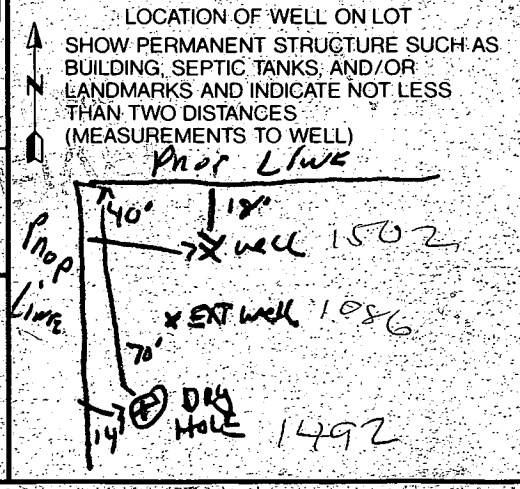 LOCATION OF WELL ON LOT
SHOW PERMANENT STRUCTURE SUCH AS
BUILDING, SEPTIC TANKS, AND/OR
LANDMARKS AND INDICATE NOT LESS
THAN TWO DISTANCES
(MEASUREMENTS TO WELL)
N
Prop Line
40' 18'
Prop
Line
X well 1502
x EXT well 1086
70'
14' DRY
HOLE 1492